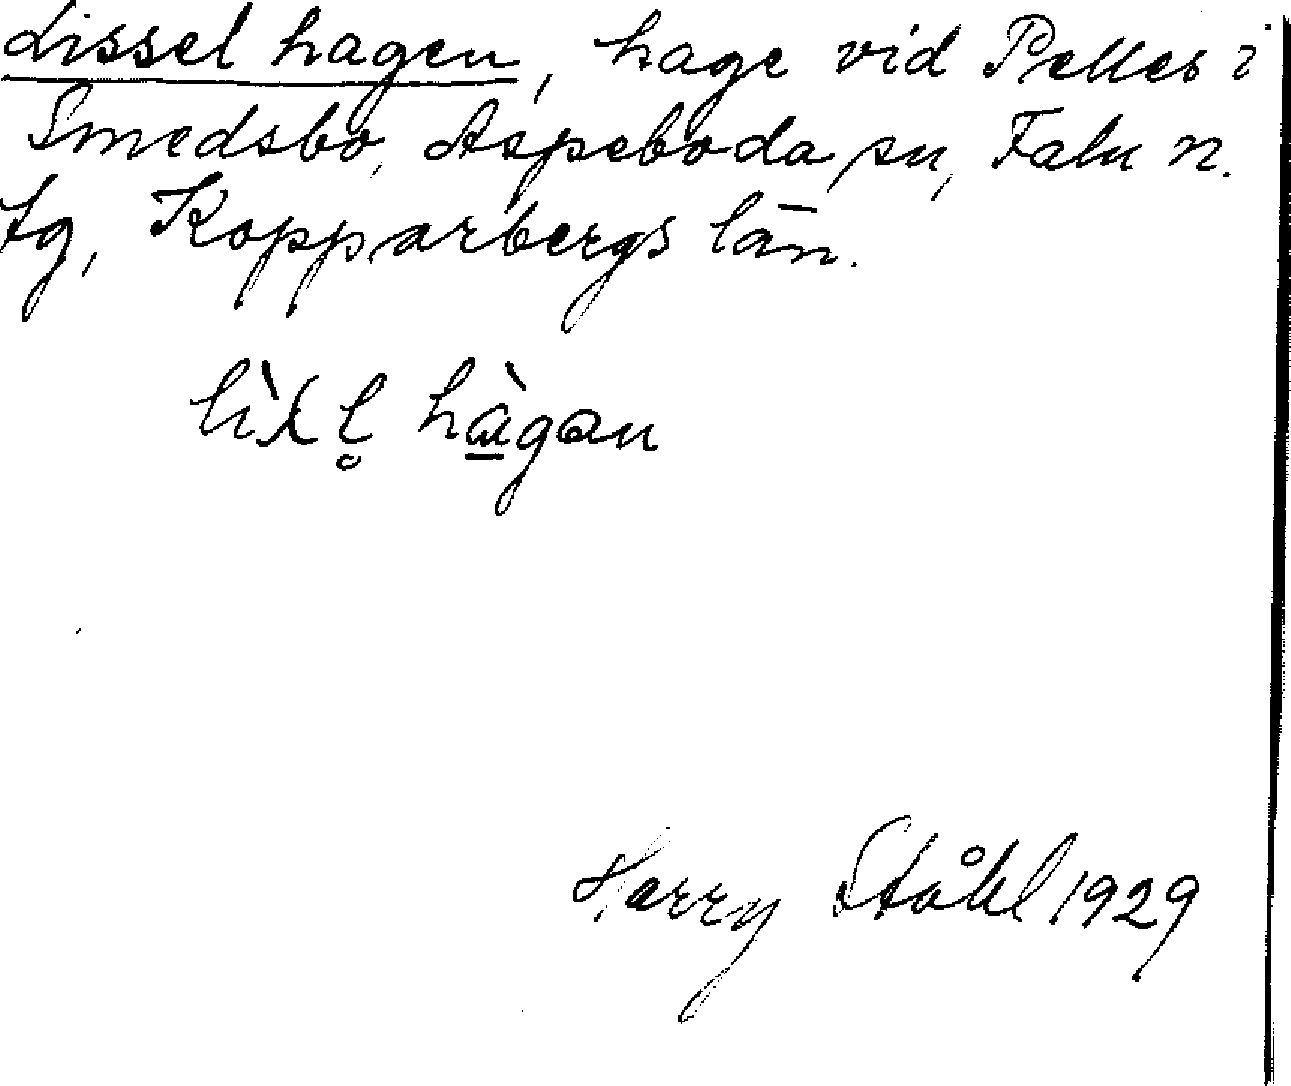 Lissel hagen, hage vid Pelles i
Smedsbo, Aspeboda sn, Falu n.
tg, Kopparbergs län.
hagan
Harry Ståhl 1929